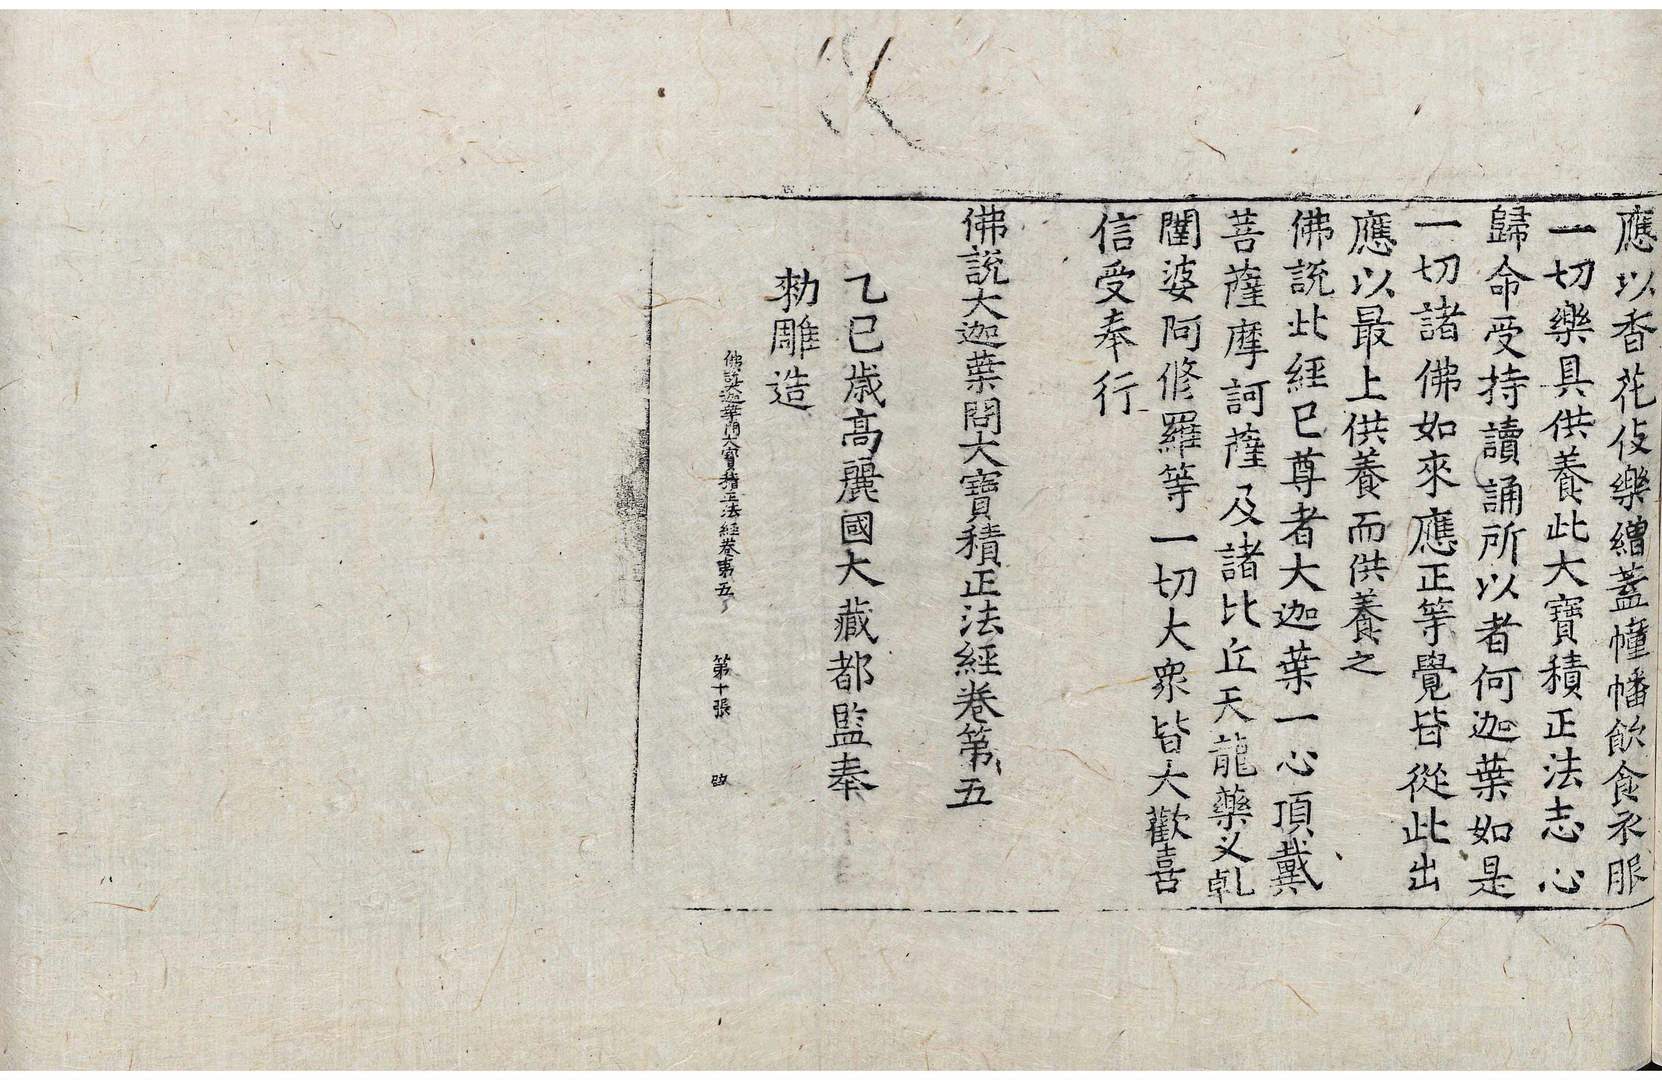 應以香花伎樂繒蓋幢幡飲食衣服
一切樂具供養此大寶積正法志心
歸命受持讀誦所以者何迦葉如是
一切諸佛如來應正等覺皆從此出
應以最上供養而供養之
佛說此經已尊者大迦葉一心頂戴
菩薩摩訶薩及諸比丘天龍藥叉乹
闥婆阿修羅等一切大衆皆大歡喜
信受奉行
佛說大迦葉問大寶積正法經卷第五
乙巳歳高麗國大藏都監奉
勑雕造
佛說迦葉問大寶積正法經卷苐五 第十張